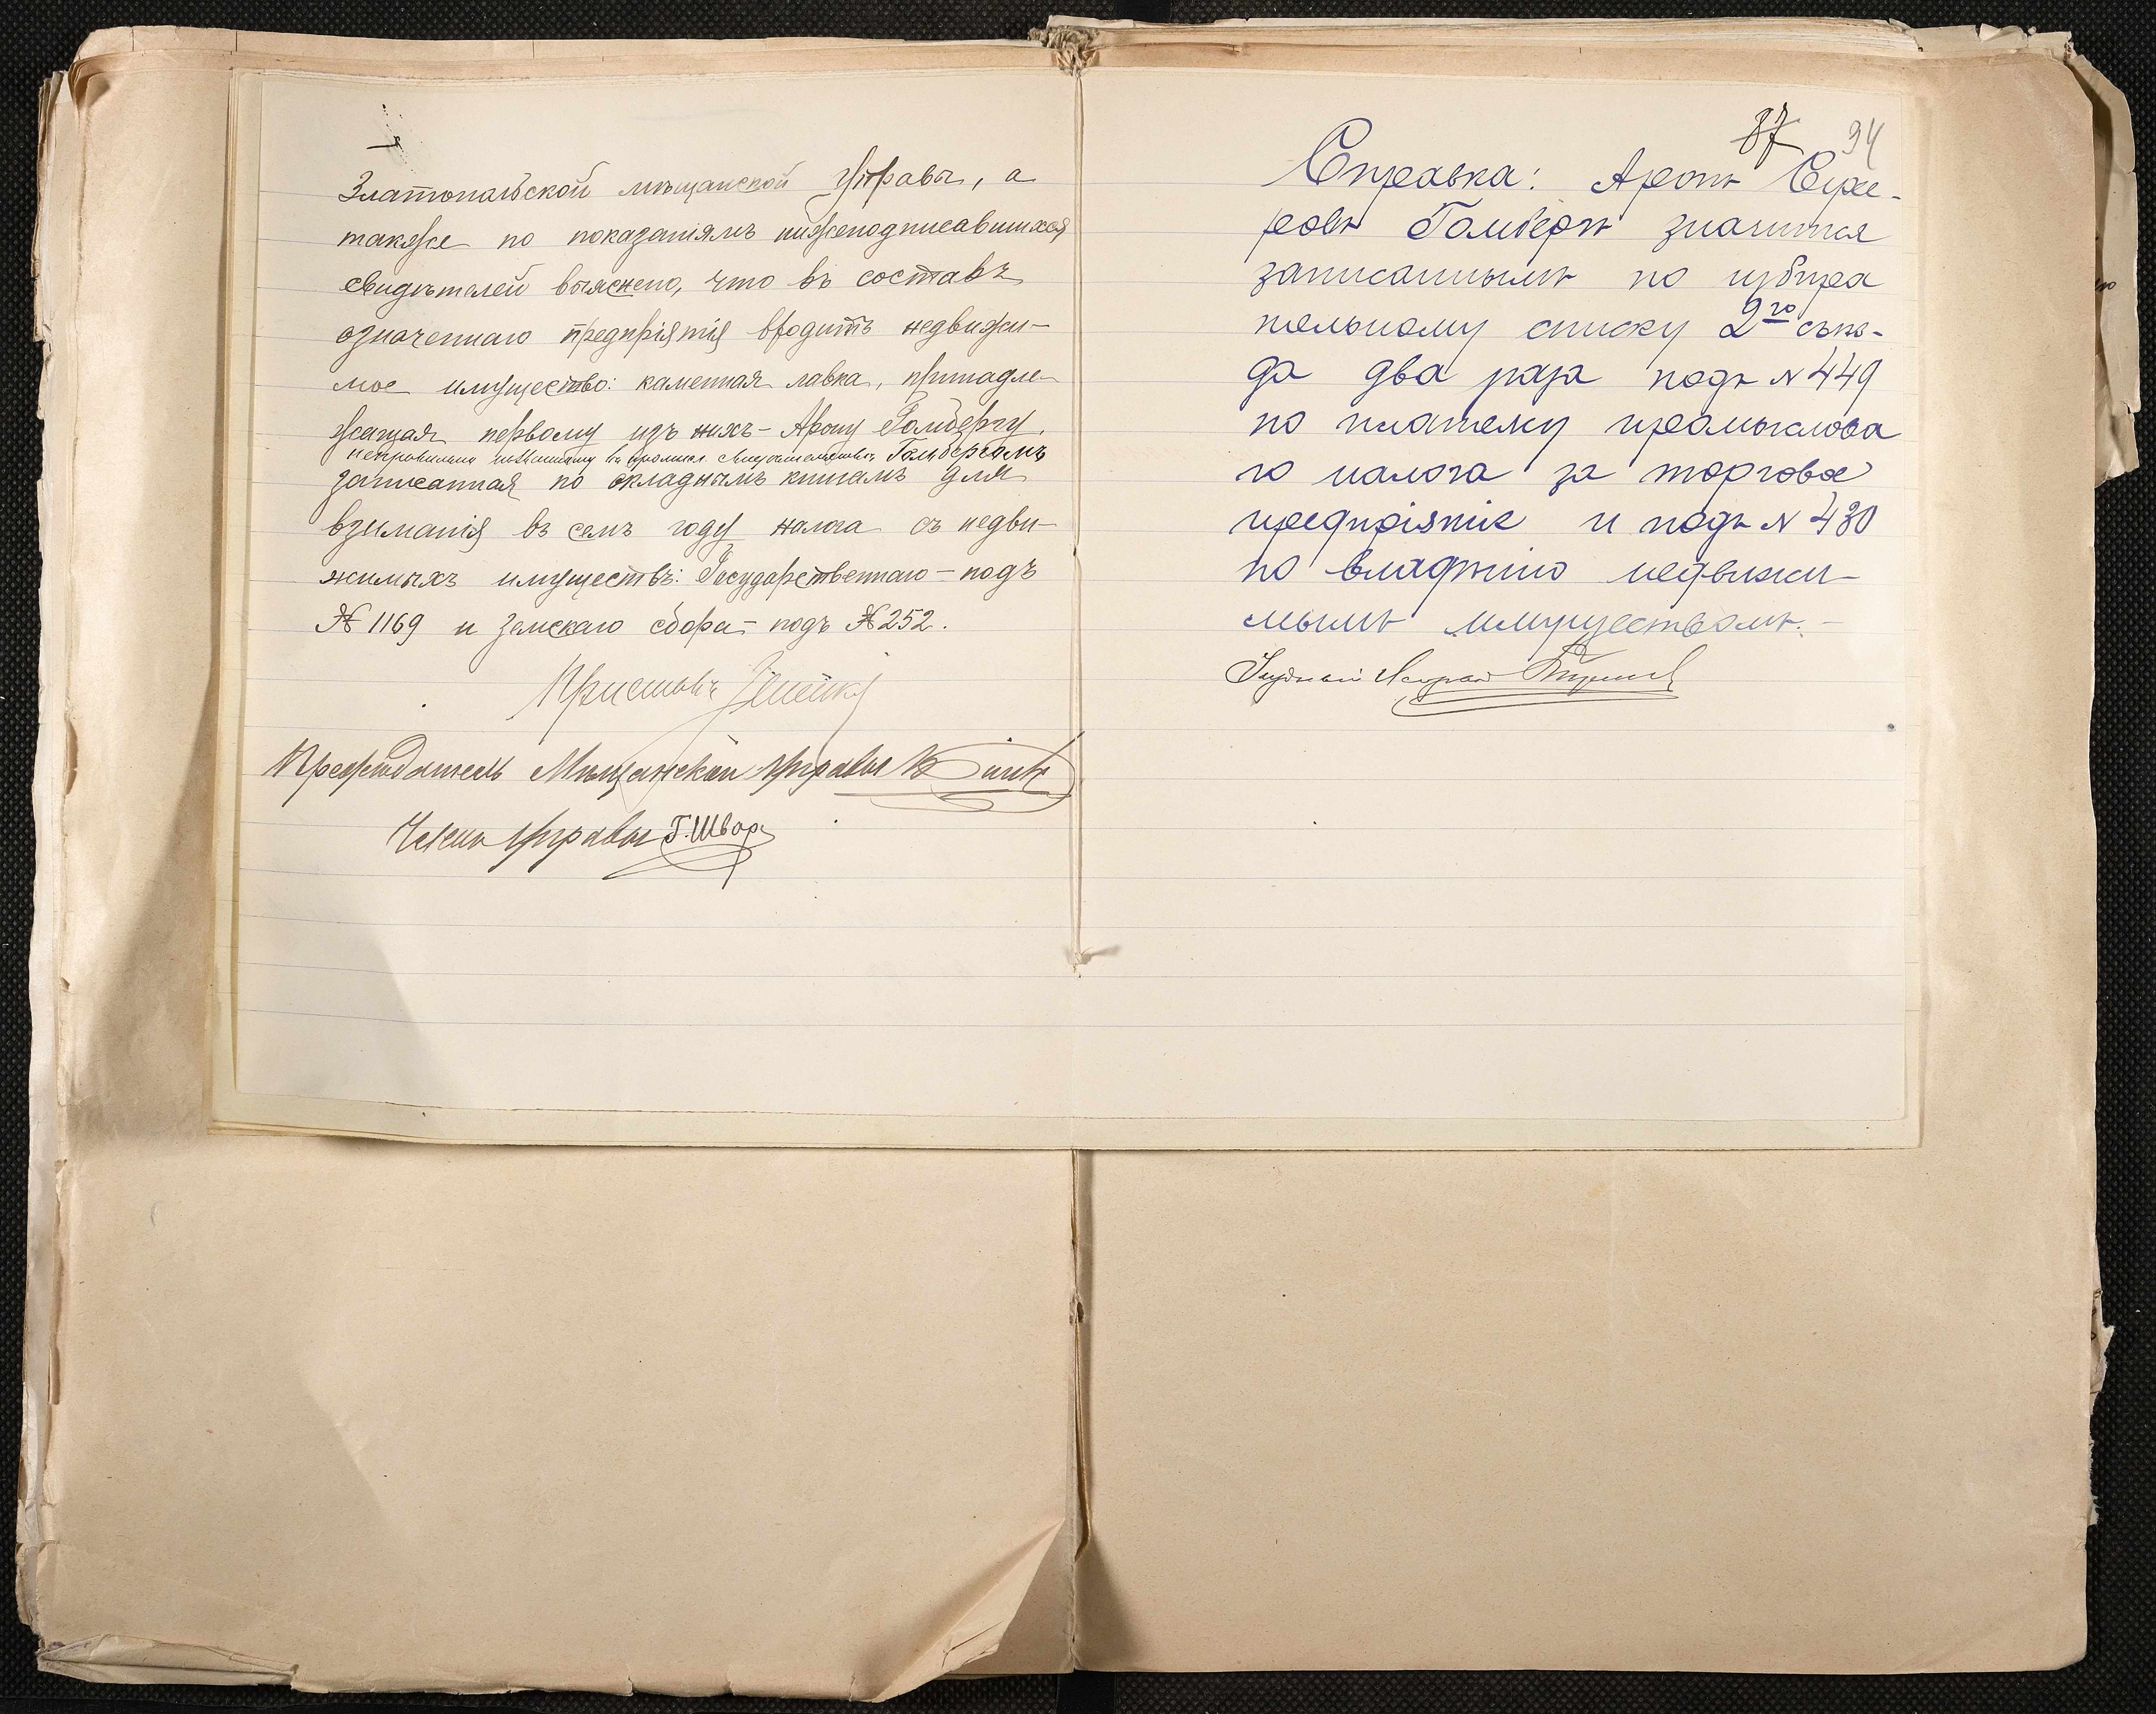 Златопольской мѣщанской Управы, а
также по показаніямъ нижеподписавшихся
свидѣтелей выяснено, что въ составъ
означеннаго предпріятія входитъ недвижи-
мое имущество: каменная лавка, принадле-
жащая первому изъ нихъ - Арону Гомбергу,
неправильно въ Гольбергамъ
записанная по окладнымъ книгамъ для
взиманія въ семъ году налога съ недви-
жимыхъ имуществъ: Государственнаго - подъ
№ 1169 и земскаго сбора - подъ № 252.
Приставъ
Предсѣдатель Мѣщанской Управы
Членъ Управы Г. Шварц
87 94
Справка: Аронъ
Гомбергъ значится
записаннымъ по избира
тельному списку 2го съѣз-
да два раза подъ № 449
по платежу промыслова
го налога за торговое
предпріятіе и подъ № 430
по владѣнію недвижи-
мымъ имуществомъ. -